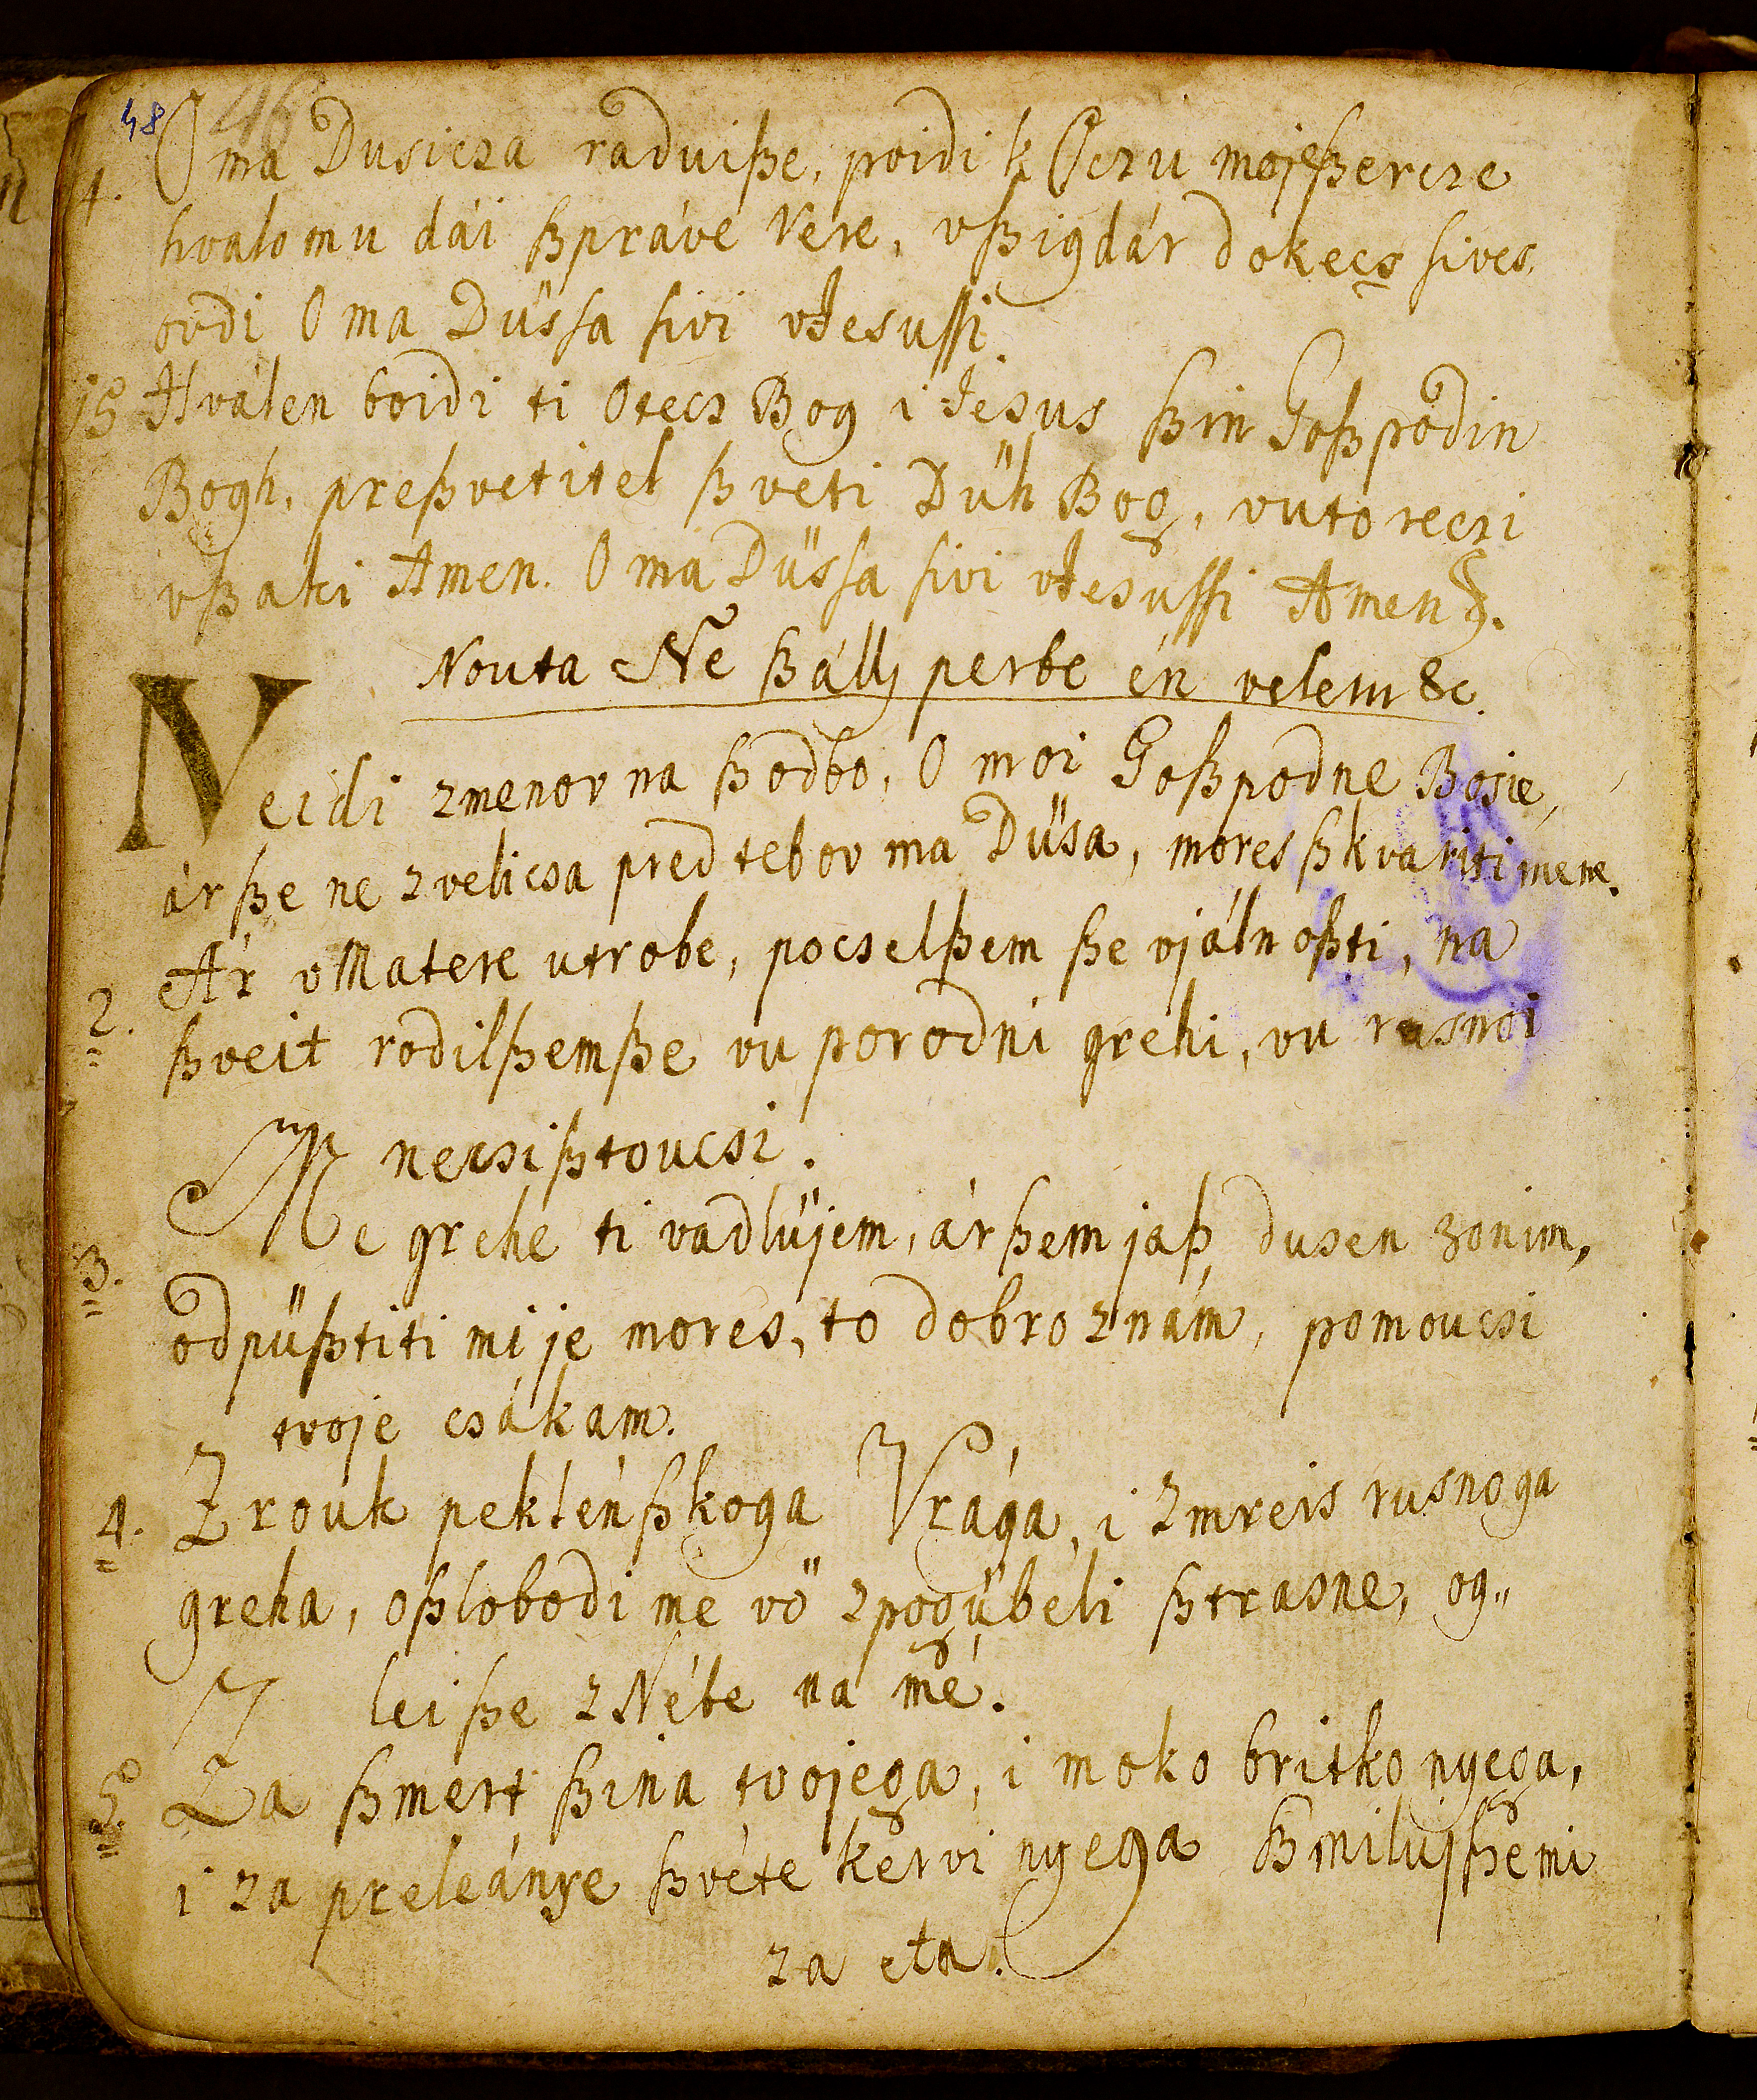 48 46
14. O ma Dusicza raduiße, poidi k Oczu mojeßercze
hvalo mu dái ßpráve Vere, vßigdár dokecs sives
ovdi O ma Düssa sivi vJesussi.
15 Hválen boidi ti Otecz Bog i Jesus ßin Goßpodin
Bogh, preßvetitel ßveti Düh Bog, vuto reczi
vßaki Amen. O ma Düssa sivi vJesussi Amen.
Nouta Ne ßállj perbe én velem &c.
Neidi zmenov na ßodbo, O moi Goßpodne Bosie,
ár ße ne zvelicsa pred tebov ma Düsa, mores ßkvariti mene.
2. Ár vMatere utrobe, pocselßem ße vjálnoßti, na
ßveit rodilßemße vu porodni grehi, vu rasnoi
necsißtoucsi.
3. Me grehe ti vadlüjem, ár ßem jaß dusen zonim,
odpüßtiti mi je mores, to dobro znám, pomoucsi
tvoje csákam.
4. Z rouk peklénßkoga Vrága, i zmreis rusnoga
greha, oßlobodi me vö zpogübéli ßtrasne, og„
leiße zNébe na mé.
5. Za ßmert ßina tvojega, i moko britko nyega,
i za preleánye ßvéte kervi nyega ßmilujßemi
za eta.